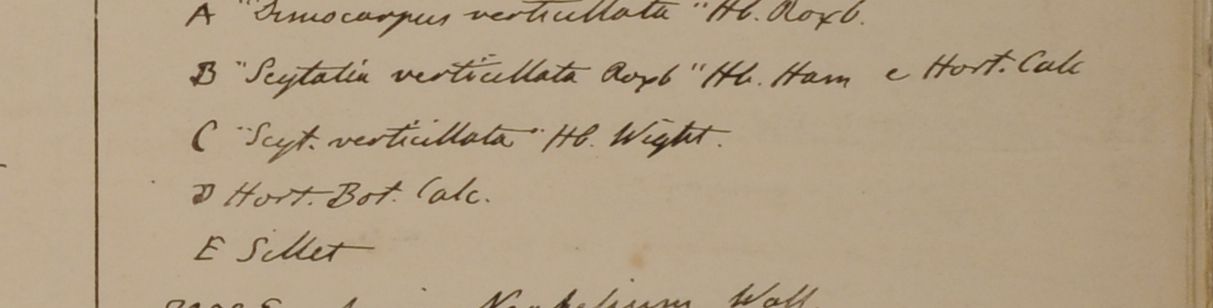 A "Dimocarpus verticillata" Hb. Roxb.
B "Scytalia verticillata Roxb" Hb. Ham e Hort. Calc
C "Scyt. verticillata" Hb. Wight.
D Hort. Bot. Calc.
E Sillet
Nephelium Wall.